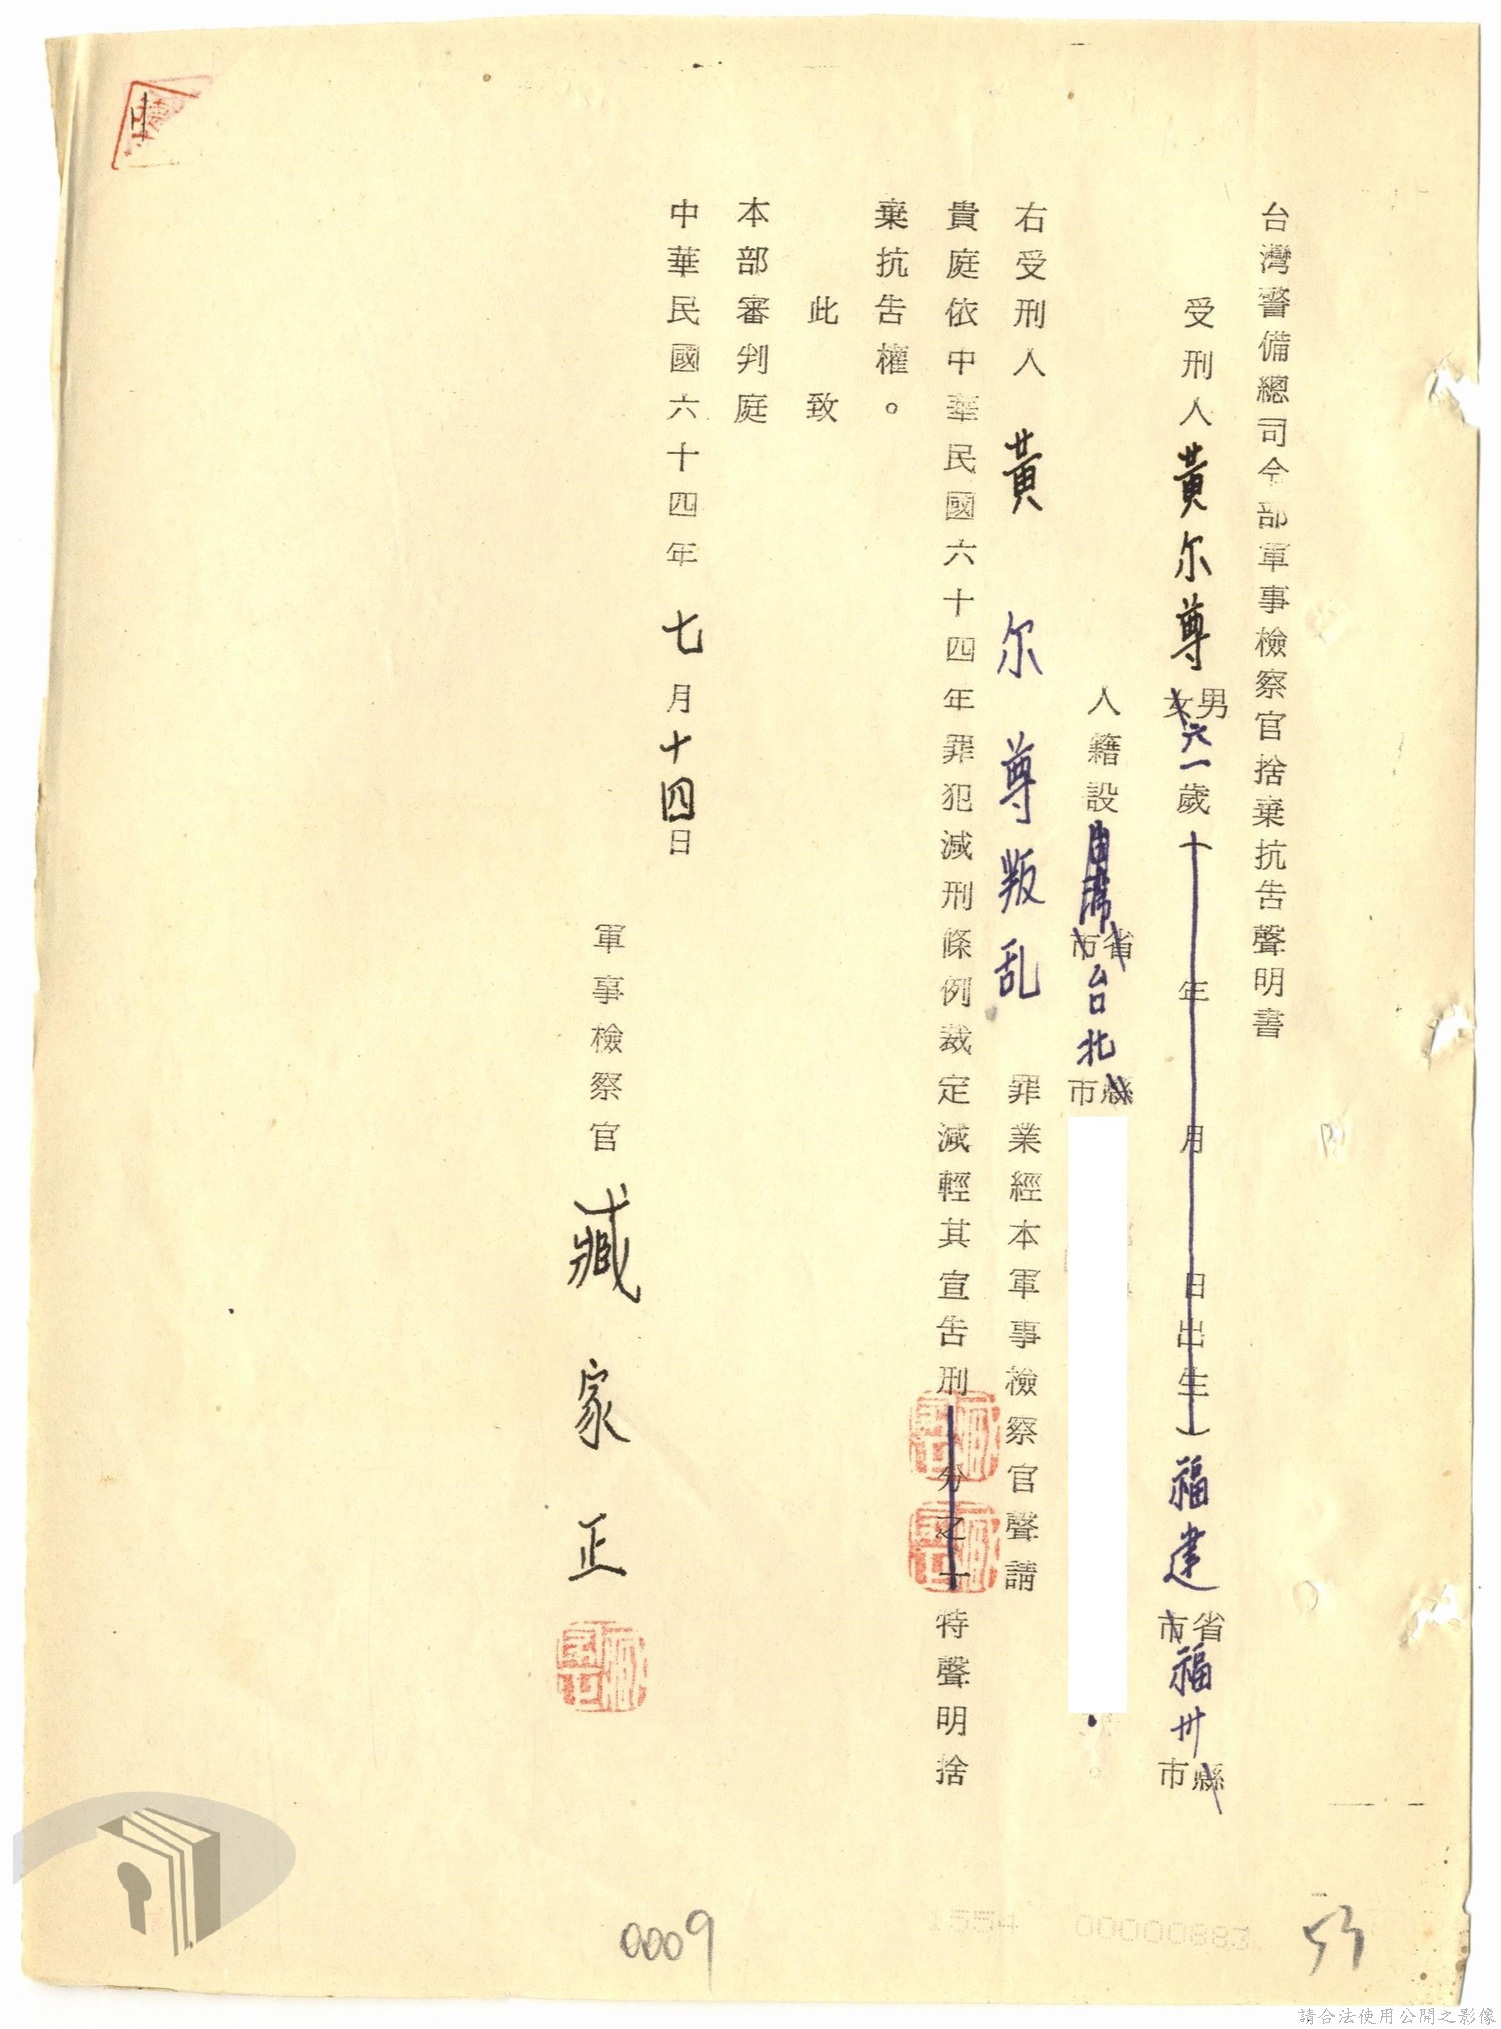 台灣警備總司令部軍事檢察官捨棄抗告聲明書
受刑人黃尔尊男女六一歲（年月日出生）福建省市福州縣市
人籍設省市台北縣市
右受刑人黃尔尊叛乱罪業經本軍事檢察官聲請
貴庭依中華民國六十四年罪犯減刑條例裁定減輕其宣告刑分之一特聲明捨
棄抗告權。
此致
本部審判庭
中華民國六十四年七月十四日
軍事檢察官臧家正
0009
1554 00000883
53
請合法使用公開之影像